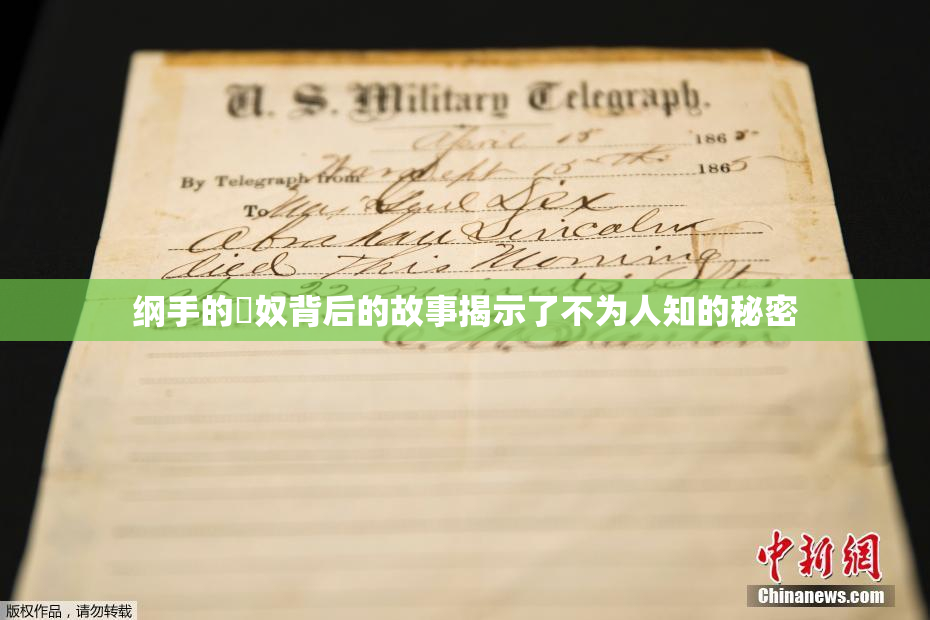 U. S. Military Telegraph.
April 15 1865
By Telegraph from War Dept 15th 1865
To Maj Genl Dix
Abraham Lincoln
died This Morning
at 22 minutes after
纲手的奴背后的故事揭示了不为人知的秘密
E. M. Stanton
中新网
Chinanews.com
版权作品，请勿转载